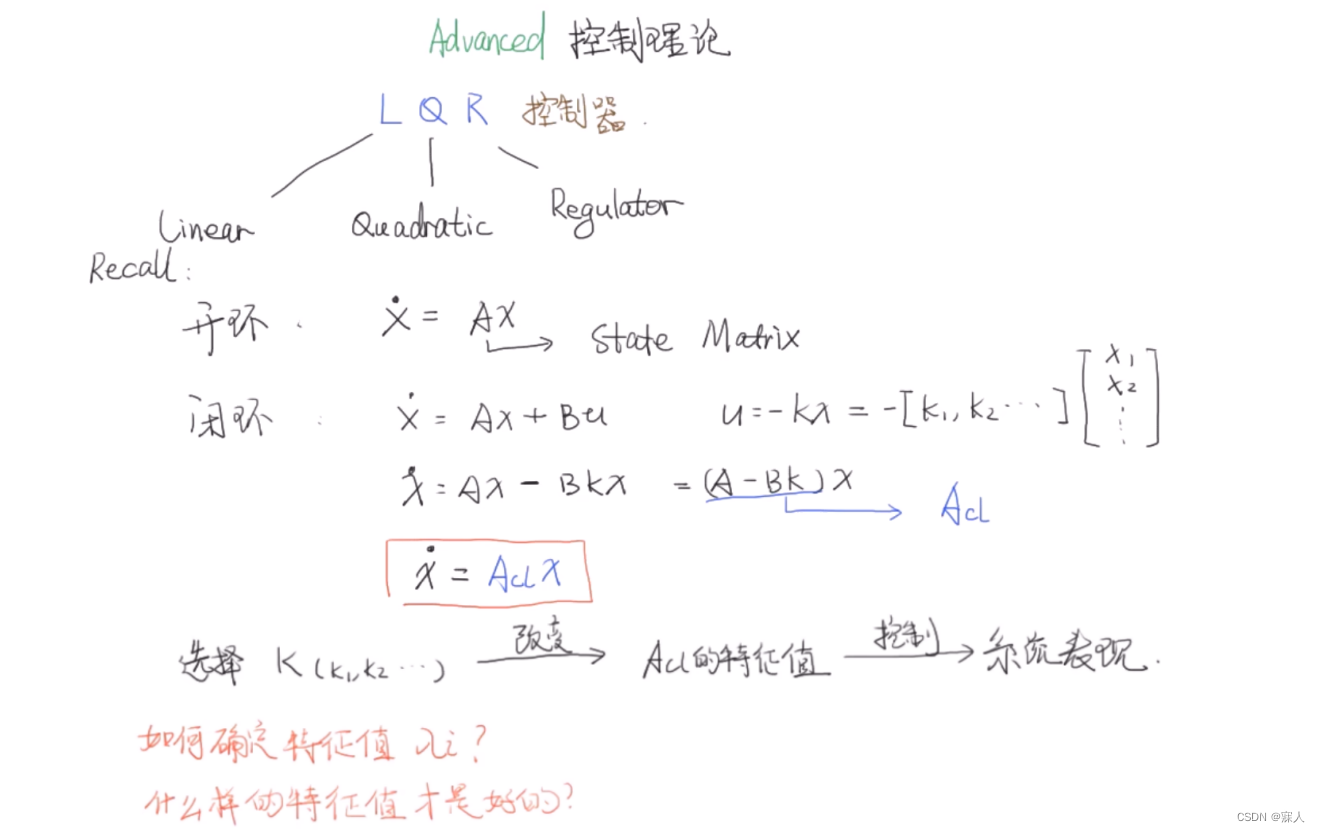 Advanced 控制理论
L Q R 控制器.
Linear Quadratic Regulator
Recall:
开环. ẋ = Ax → State Matrix
闭环: ẋ = Ax + Bu u = -kx = -[k₁, k₂ ⋯] [x₁ x₂ ⋮]
ẋ = Ax - Bkx = (A - Bk)x → Acl
ẋ = Acl x
选择 K (k₁, k₂ ⋯) 改变→ Acl的特征值 控制→ 系统表现.
如何确定特征值 λi?
什么样的特征值才是好的?
CSDN @寐人